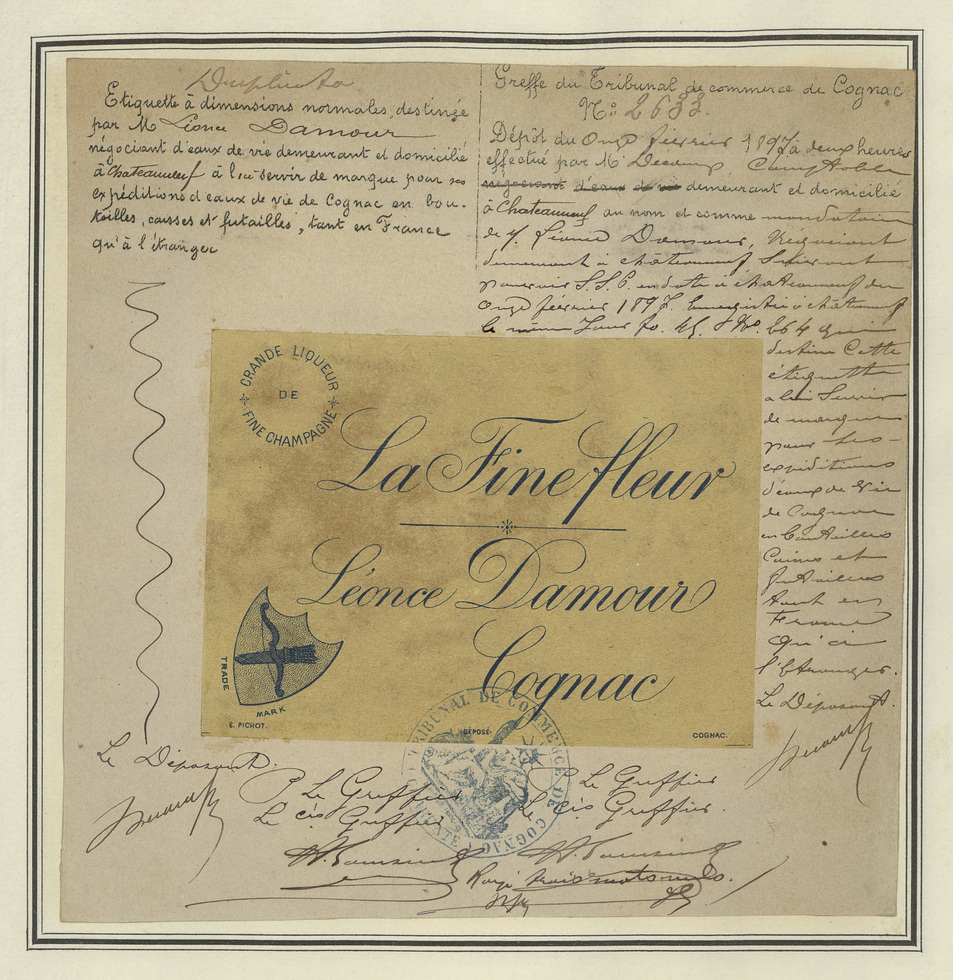 Duplicata
Etiquette à dimensions normales, destinée
par M Léonce Damour
négociant d'eaux de vie demeurant et domicilié
à Chateauneuf à lui servir de marque pour ses
expéditions d'eaux de vie de Cognac en bou-
teilles, caisses et futailles, tant en France
qu'à l'étranger
Le Déposant.
Greffe du Tribunal de commerce de Cognac
N.o 2633.
Dépôt du onze février 1897 à deux heures
effectué par Mr
négociant d'eaux de vie demeurant et domicilié
à Chateauneuf au nom et comme mandataire
de M. Léonce Damour, Négociant
demeurant à châteauneuf, suivant
pouvoir S.S.P. en date à châteauneuf du
onze février 1897. Enregistré à châteauneuf
le même jour fo. 45. qui
destine cette
étiquette
à lui servir
de marque
pour ses
expéditions
d'eaux de vie
de Cognac
en bouteilles
caisses et
futailles
tant en
France
qu'à
l'étranger.
Le Déposant.
GRANDE LIQUEUR
DE
FINE CHAMPAGNE
La Fine fleur
Léonce Damour
Cognac
TRADE
MARK
E. PICHOT.
DÉPOSÉ
COGNAC.
TRIBUNAL DE COMMERCE DE COGNAC
P. Le Greffier
Le cis Greffier
P. Le Greffier
Le cis Greffier.
Rayé trois mots nuls.